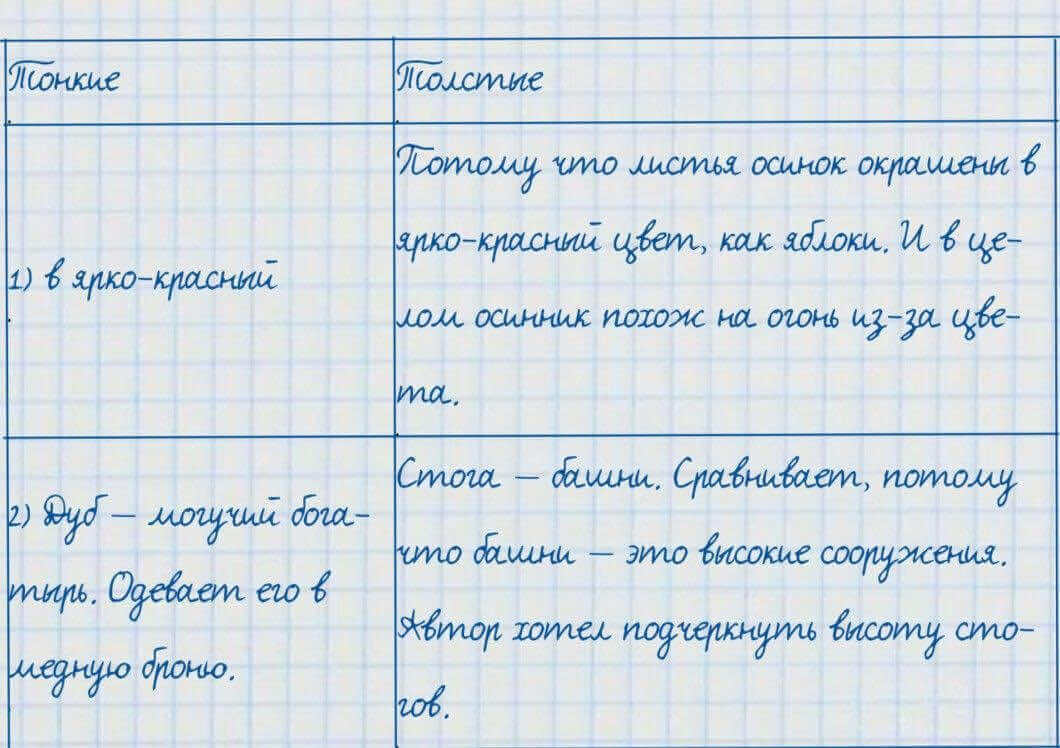 Тонкие
Толстые
1) в ярко-красный
Потому что листья осинок окрашены в
ярко-красный цвет, как яблоки. И в це-
лом осинник похож на огонь из-за цве-
та.
2) Дуб — могучий бога-
тырь. Одевает его в
медную броню.
Стога — башни. Сравнивает, потому
что башни — это высокие сооружения.
Автор хотел подчеркнуть высоту сто-
гов.